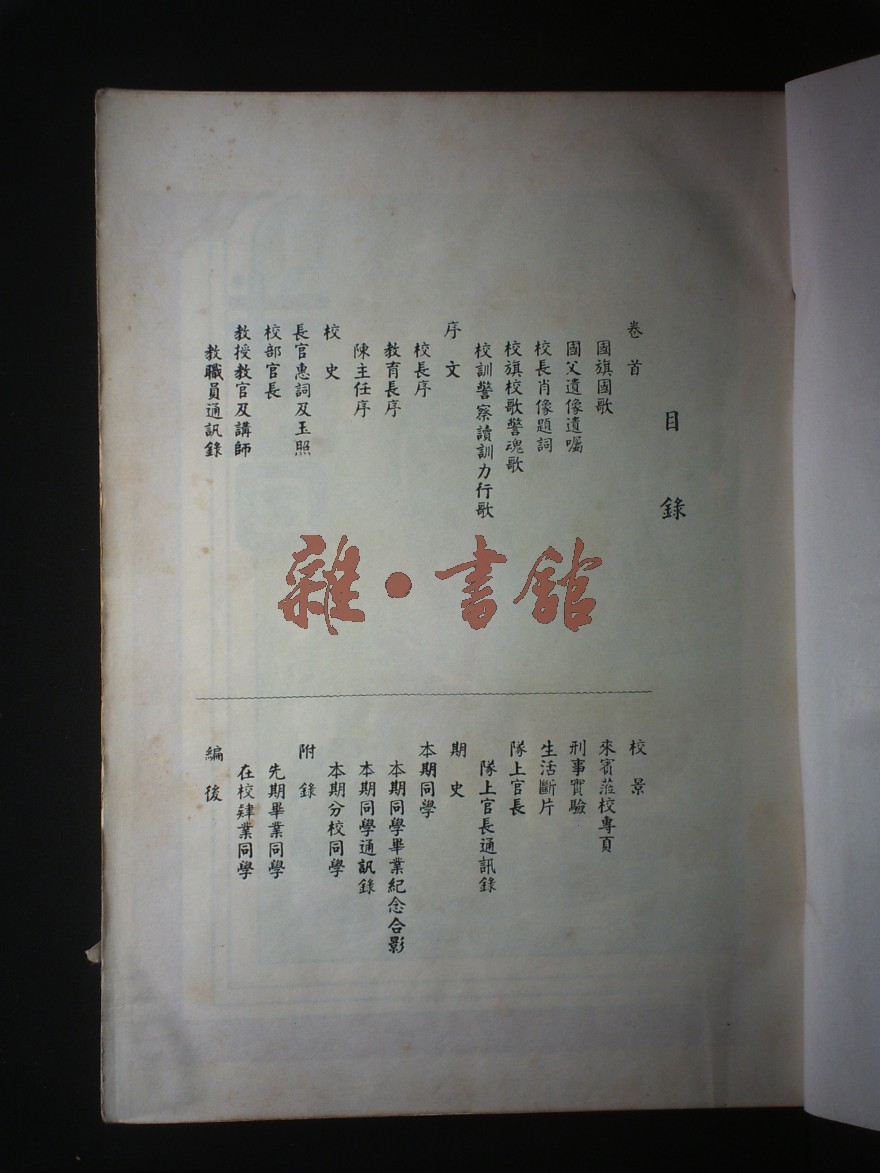 目錄
卷首
國旗國歌
國父遺像遺囑
校長肖像題詞
校旗校歌警魂歌
校訓警察讀訓力行歌
序文
校長序
教育長序
陳主任序
校史
長官惠詞及玉照
校部官長
教授教官及講師
教職員通訊錄
雜•書館
校景
來賓蒞校專頁
刑事實驗
生活斷片
隊上官長
隊上官長通訊錄
期史
本期同學
本期同學畢業紀念合影
本期同學通訊錄
本期分校同學
附錄
先期畢業同學
在校肄業同學
編後